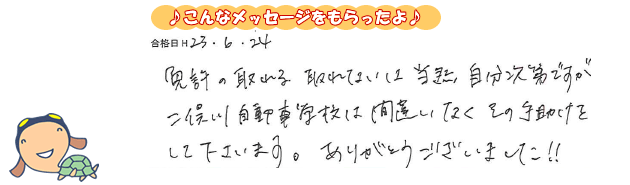 ♪こんなメッセージをもらったよ♪
合格日 H23.6.24
免許の取れる取れないは当然、自分次第ですが
二俣川自動車学校は間違いなくその手助けを
して下さいます。ありがとうございました!!